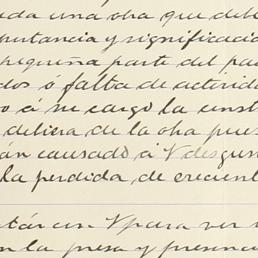 da una obra que debe
portancia y significació
pequeña parte del pa
dos ó falta de activida
o á su cargo la const
debiera de la obra pues
án causado á V desgus
la perdida de crecient
tár un V para ver
n la presa y presenc